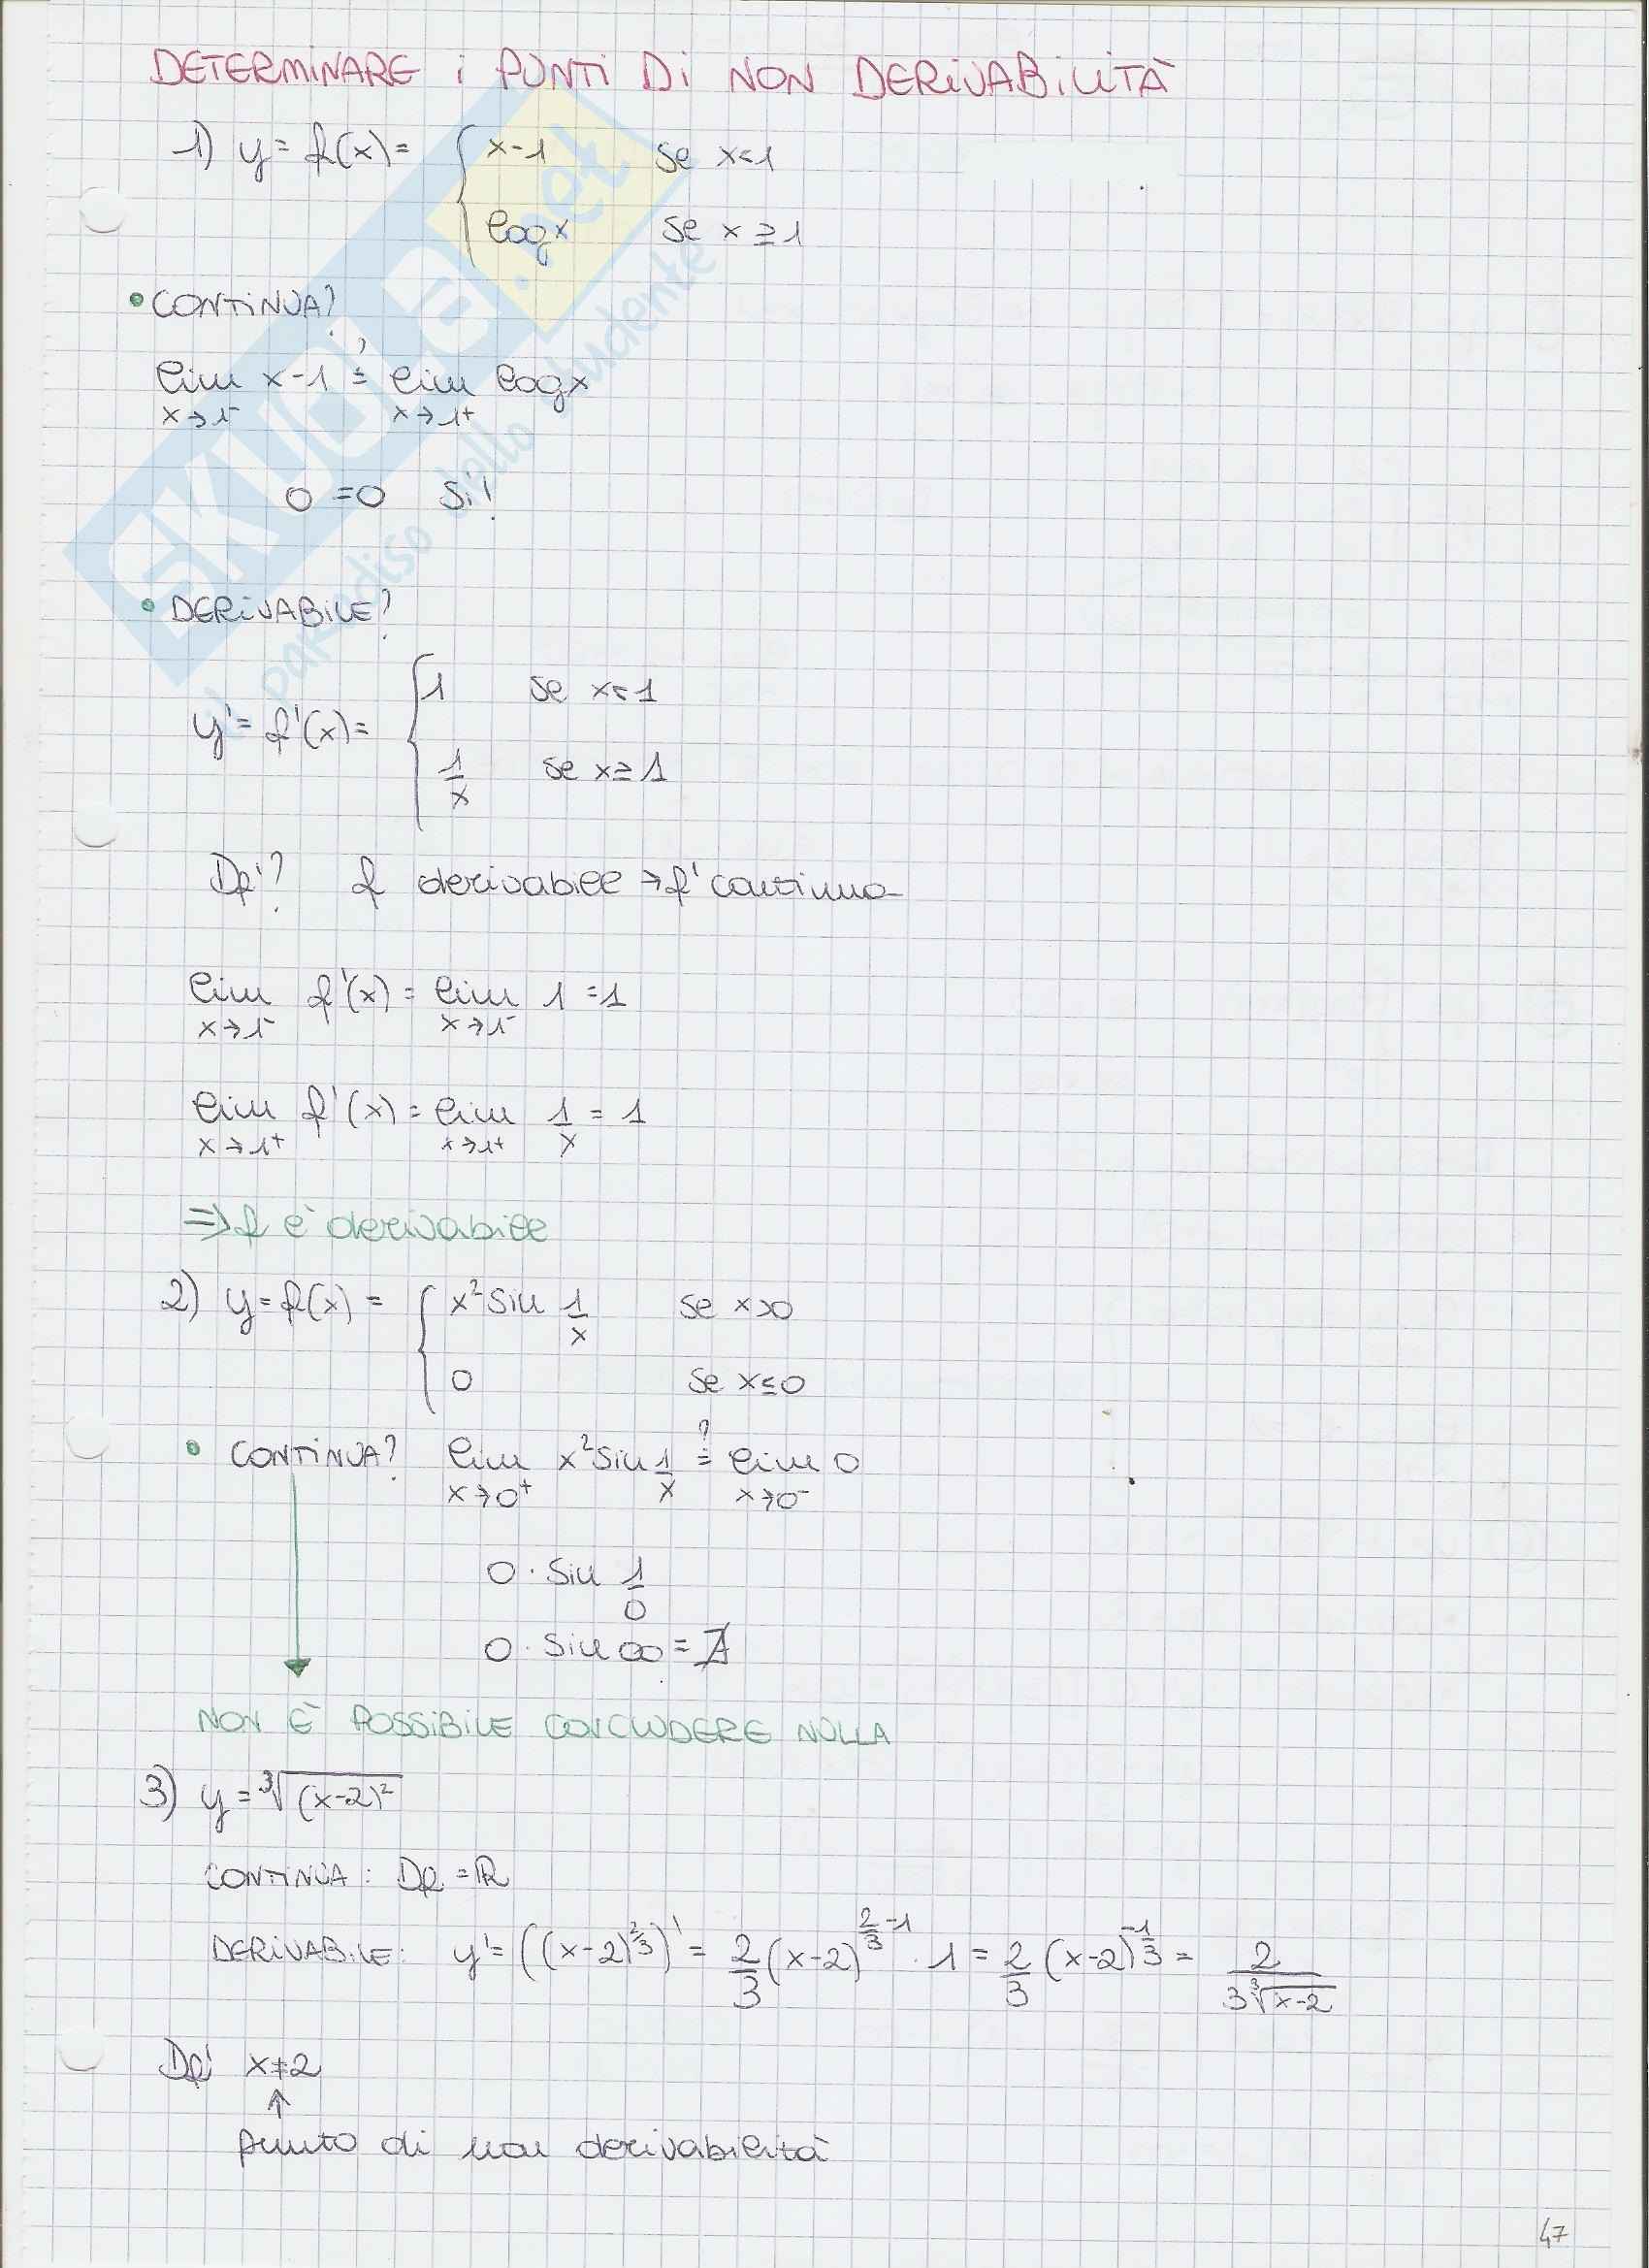 DETERMINARE i PUNTI Di NON DERIVABILITÀ
1) y = f(x) = { x-1 se x<1
log x se x ≥ 1
• CONTINUA?
lim x→1⁻ x-1 ≟ lim x→1⁺ log x
0 = 0 Si!
• DERIVABILE?
y' = f'(x) = { 1 se x<1
1/x se x ≥ 1
Df'? f derivabile → f' continua
lim x→1⁻ f'(x) = lim x→1⁻ 1 = 1
lim x→1⁺ f'(x) = lim x→1⁺ 1/x = 1
⇒ f è derivabile
2) y = f(x) = { x² sin 1/x se x>0
0 se x≤0
• CONTINUA? lim x→0⁺ x² sin 1/x ≟ lim x→0⁻ 0
0 · sin 1/0
0 · sin ∞ = ∄
NON È POSSIBILE CONCLUDERE NULLA
3) y = ∛(x-2)²
CONTINUA: Df = ℝ
DERIVABILE: y' = ((x-2)^(2/3))' = 2/3 (x-2)^(2/3 -1) · 1 = 2/3 (x-2)^(-1/3) = 2/(3∛x-2)
Df' x≠2
↑
punto di non derivabilità
47
SKUOLA.net
il paradiso dello studente